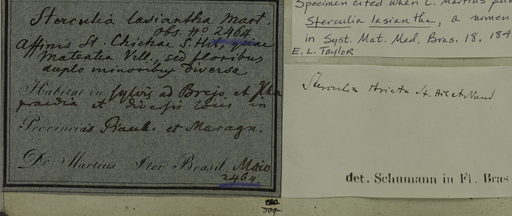 Sterculia lasiantha Mart.
Obs. No 2464
Affinis St. Chichae S. Hil., quae
Mateatia Vell., sed floribus
duplo minoribus diversa
Habitat in sylvis ad Brejo, et
praedia et diversis locis in
Provinciis Piauh. et Maragn.
Dr Martius Iter Brasil. Maio
2464
Specimen cited when C. Martius
Sterculia lasiantha, a nomen
in Syst. Mat. Med. Bras. 18, 184
E. L. Taylor
Sterculia striata St. Hil et Naud
det. Schumann in Fl. Bras